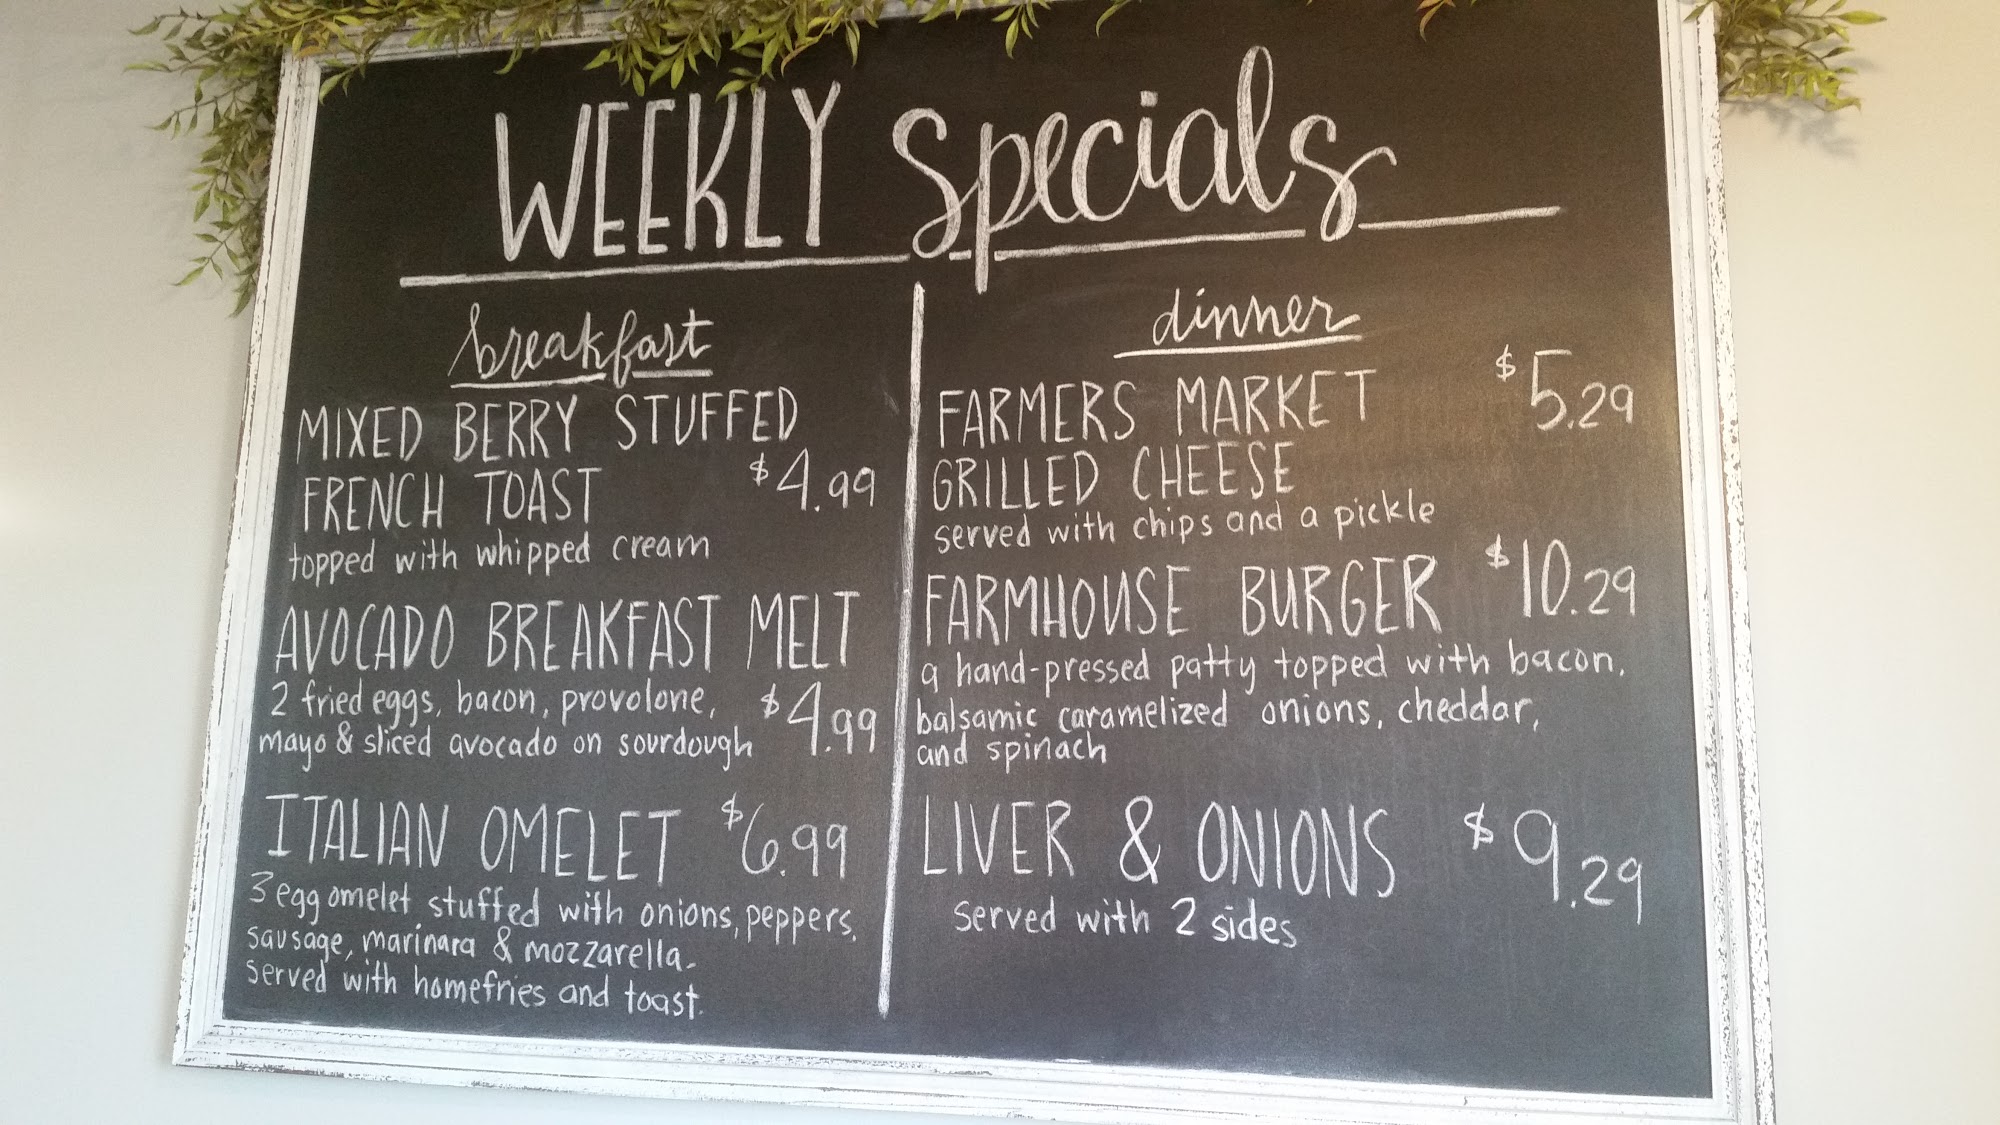 WEEKLY Specials
breakfast
MIXED BERRY STUFFED
FRENCH TOAST $4.99
topped with whipped cream
AVOCADO BREAKFAST MELT
2 fried eggs, bacon, provolone, $4.99
mayo & sliced avocado on sourdough
ITALIAN OMELET $6.99
3 egg omelet stuffed with onions, peppers,
sausage, marinara & mozzarella.
served with homefries and toast.
dinner
FARMERS MARKET $5.29
GRILLED CHEESE
served with chips and a pickle
FARMHOUSE BURGER $10.29
a hand-pressed patty topped with bacon,
balsamic caramelized onions, cheddar,
and spinach
LIVER & ONIONS $9.29
served with 2 sides